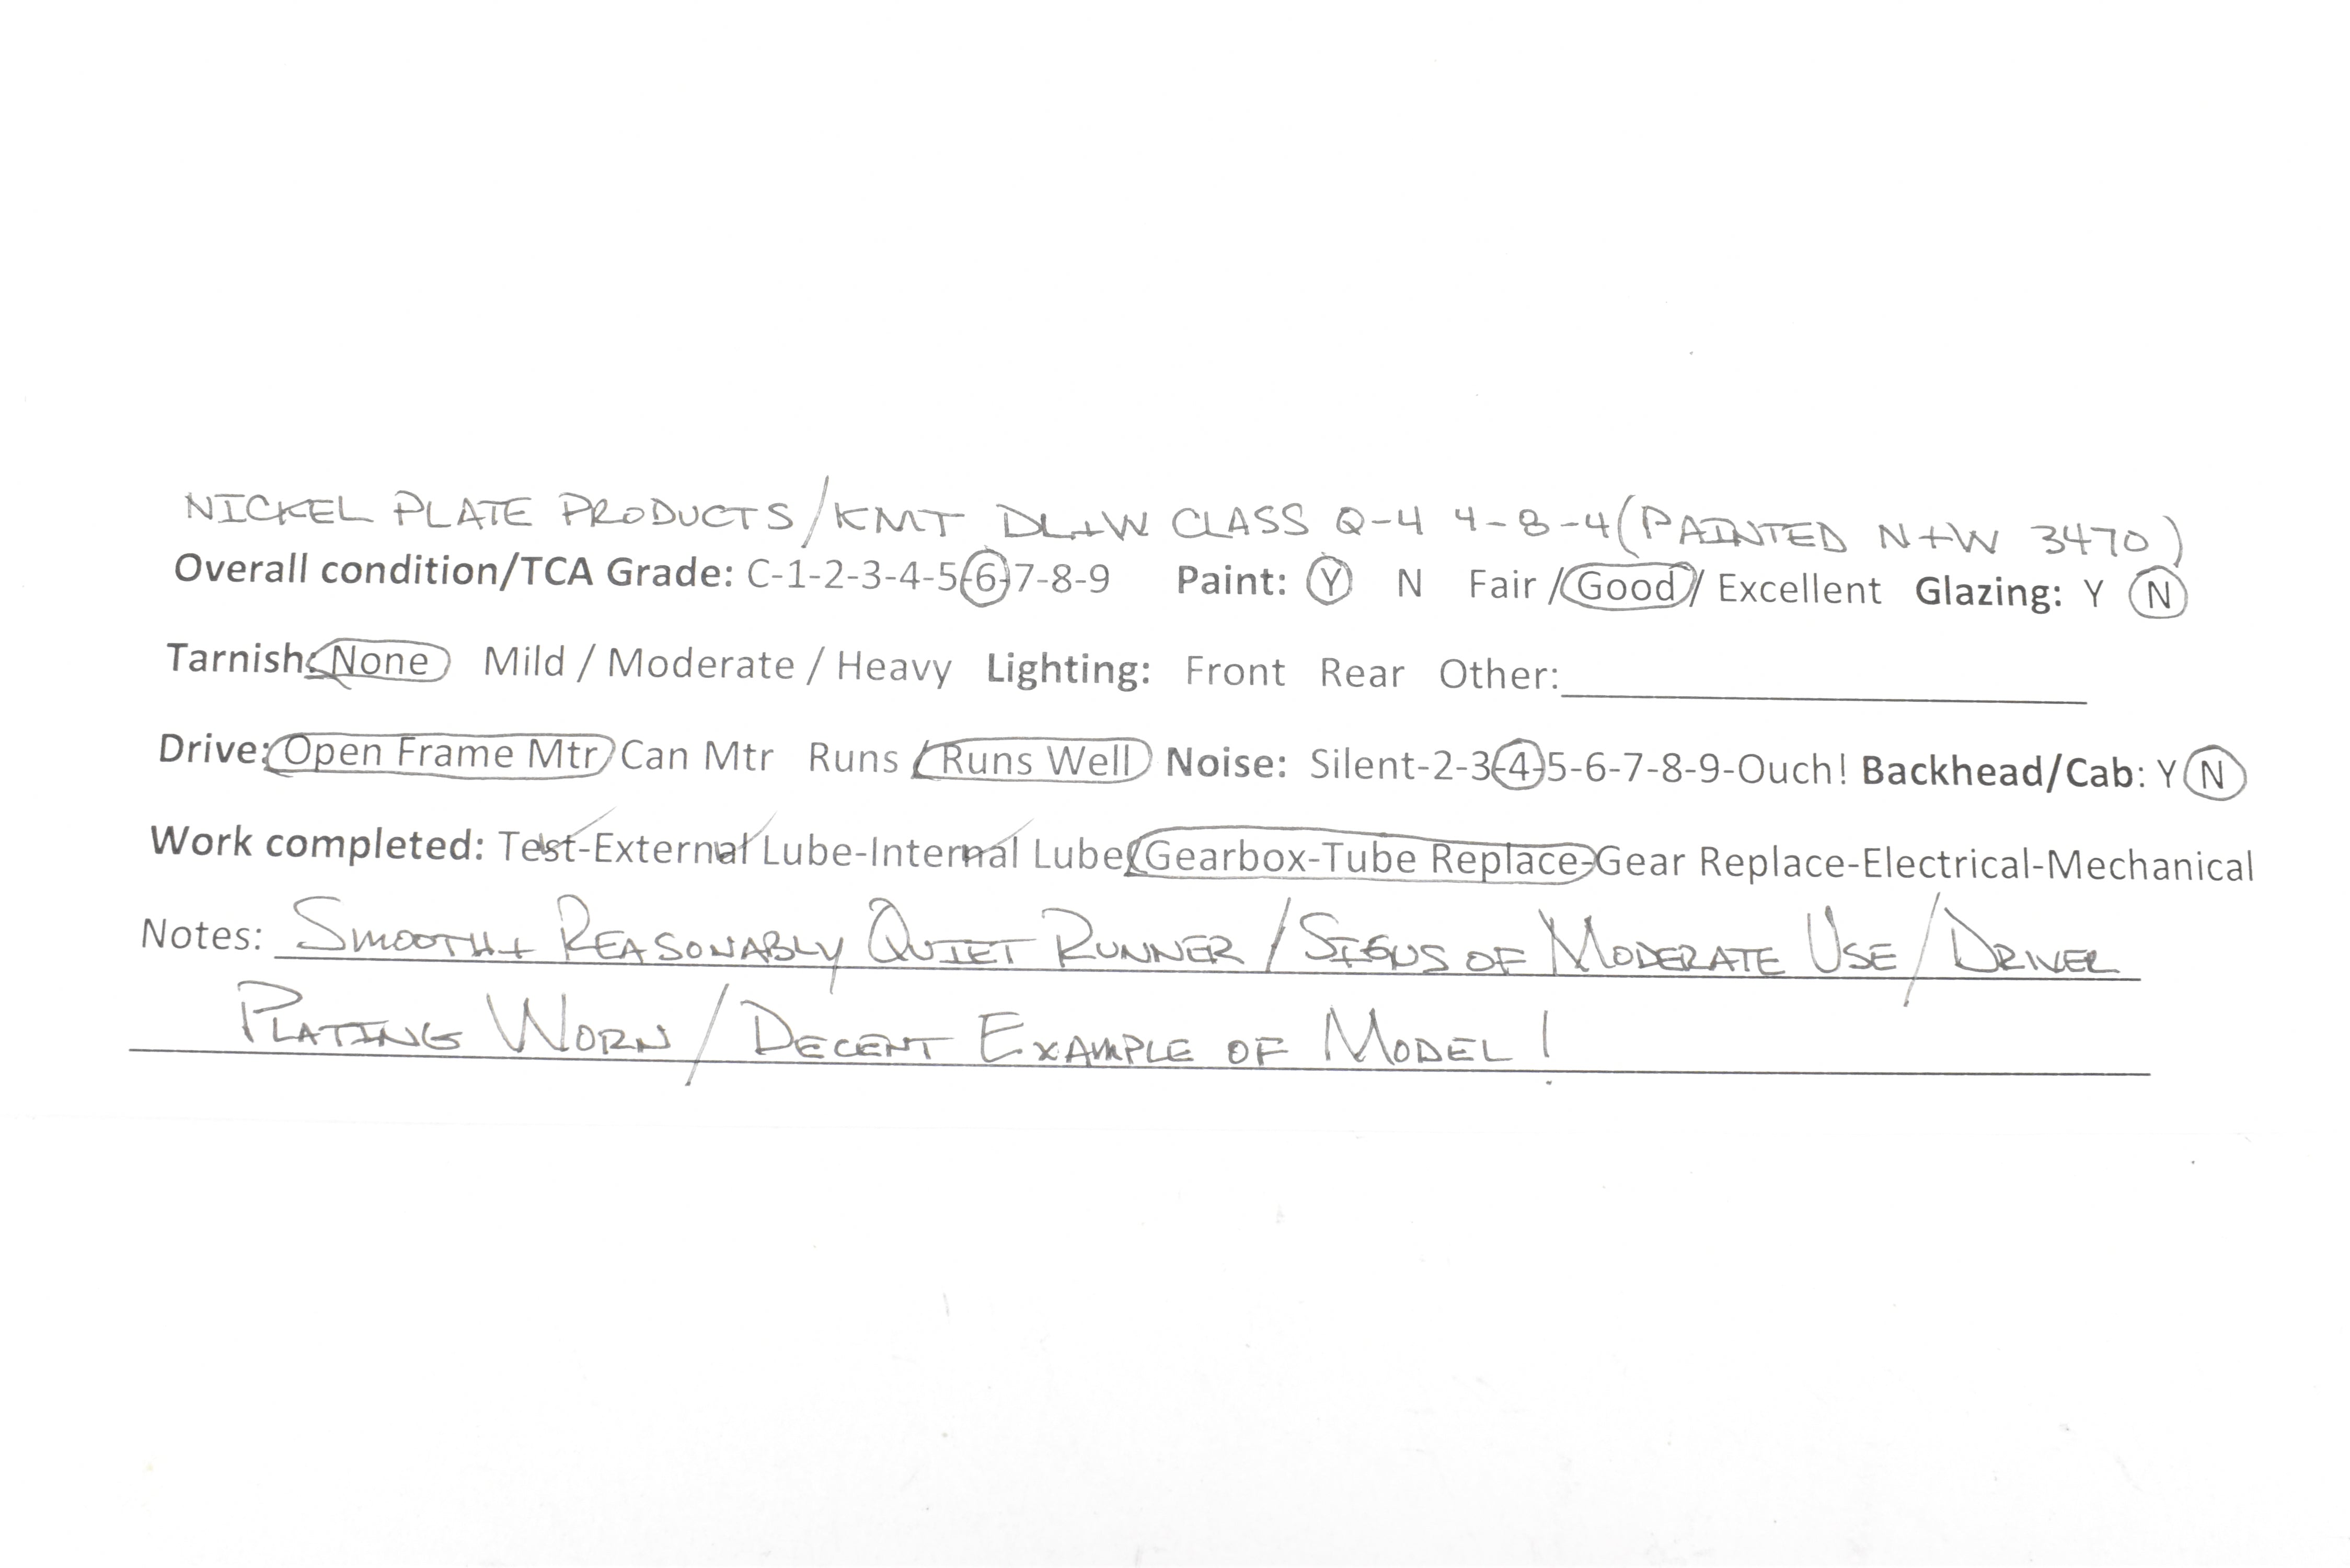 NICKEL PLATE PRODUCTS/KMT DL+W CLASS Q-4 4-8-4 (PAINTED N+W 3470)
Overall condition/TCA Grade: C-1-2-3-4-5-6-7-8-9 Paint: Y N Fair / Good / Excellent Glazing: Y N
Tarnish: None Mild / Moderate / Heavy Lighting: Front Rear Other:
Drive: Open Frame Mtr Can Mtr Runs / Runs Well Noise: Silent-2-3-4-5-6-7-8-9-Ouch! Backhead/Cab: Y N
Work completed: Test-External Lube-Internal Lube-Gearbox-Tube Replace-Gear Replace-Electrical-Mechanical
Notes: SMOOTH + REASONABLY QUIET RUNNER / SIGNS OF MODERATE USE / DRIVER
PLATING WORN / DECENT EXAMPLE OF MODEL!